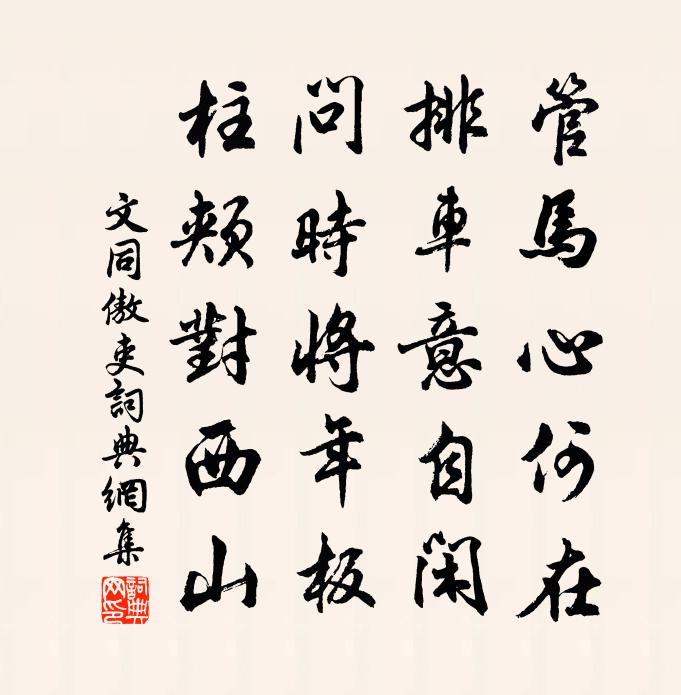 管馬心何在
排車意自閑
問時將年板
柱頰對西山
文同傲吏詞典網集
詞典網印